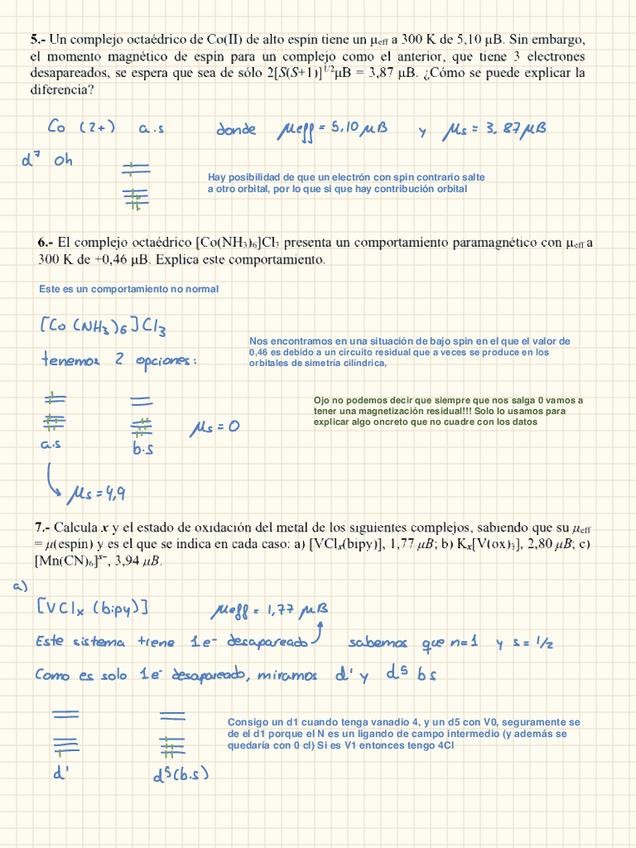 5.- Un complejo octaédrico de Co(II) de alto espín tiene un μeff a 300 K de 5,10 μB. Sin embargo,
el momento magnético de espín para un complejo como el anterior, que tiene 3 electrones
desapareados, se espera que sea de sólo 2[S(S+1)]^1/2μB = 3,87 μB. ¿Cómo se puede explicar la
diferencia?
Co (2+) a.s donde μeff = 5,10 μB y μs = 3,87 μB
d⁷ Oh
Hay posibilidad de que un electrón con spin contrario salte
a otro orbital, por lo que si que hay contribución orbital
6.- El complejo octaédrico [Co(NH₃)₆]Cl₃ presenta un comportamiento paramagnético con μeff a
300 K de +0,46 μB. Explica este comportamiento.
Este es un comportamiento no normal
[Co (NH₃)₆]Cl₃
tenemos 2 opciones:
Nos encontramos en una situación de bajo spin en el que el valor de
0,46 es debido a un circuito residual que a veces se produce en los
orbitales de simetría cilíndrica,
Ojo no podemos decir que siempre que nos salga 0 vamos a
tener una magnetización residual!!! Solo lo usamos para
explicar algo oncreto que no cuadre con los datos
a.s
b.s
μs = 0
μs = 4,9
7.- Calcula x y el estado de oxidación del metal de los siguientes complejos, sabiendo que su μeff
= μ(espín) y es el que se indica en cada caso: a) [VClx(bipy)], 1,77 μB; b) Kx[V(ox)₃], 2,80 μB; c)
[Mn(CN)₆]ˣ⁻, 3,94 μB.
a)
[VClx (bipy)] μeff = 1,77 μB
Este sistema tiene 1e⁻ desapareado sabemos que n=1 y s = 1/2
Como es solo 1e⁻ desapareado, miramos d¹ y d⁵ bs
Consigo un d1 cuando tenga vanadio 4, y un d5 con V0, seguramente se
de el d1 porque el N es un ligando de campo intermedio (y además se
quedaría con 0 cl) Si es V1 entonces tengo 4Cl
d¹ d⁵(b.s)